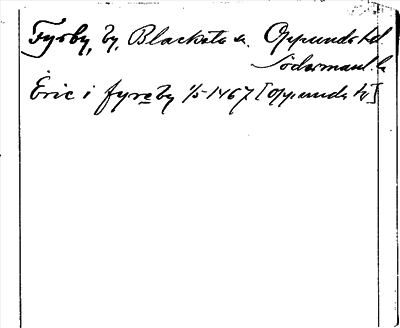 Fyrby, by, Blacksta sn. Oppunda hd
Södermanl. l.
Eric i fyreby 1/5 1467 [Oppunda h]